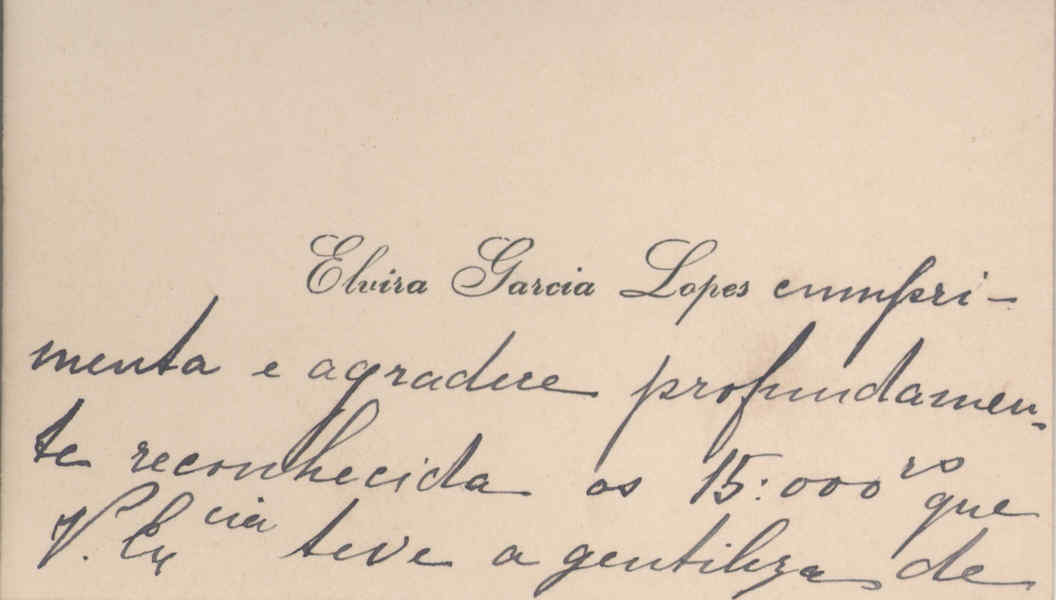 Elvira Garcia Lopes cumpri-
menta e agradece profundamen-
te reconhecida os 15:000 rs que
V. Ex cia teve a gentileza de